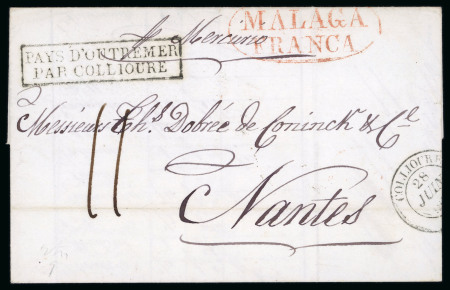 MALAGA
FRANCA
p. Mercurio
PAYS D'OUTREMER
PAR COLLIOURE
Messieurs Ths. Dobrée de Coninck & Cie
11
Nantes
COLLIOURE
28
JUIN